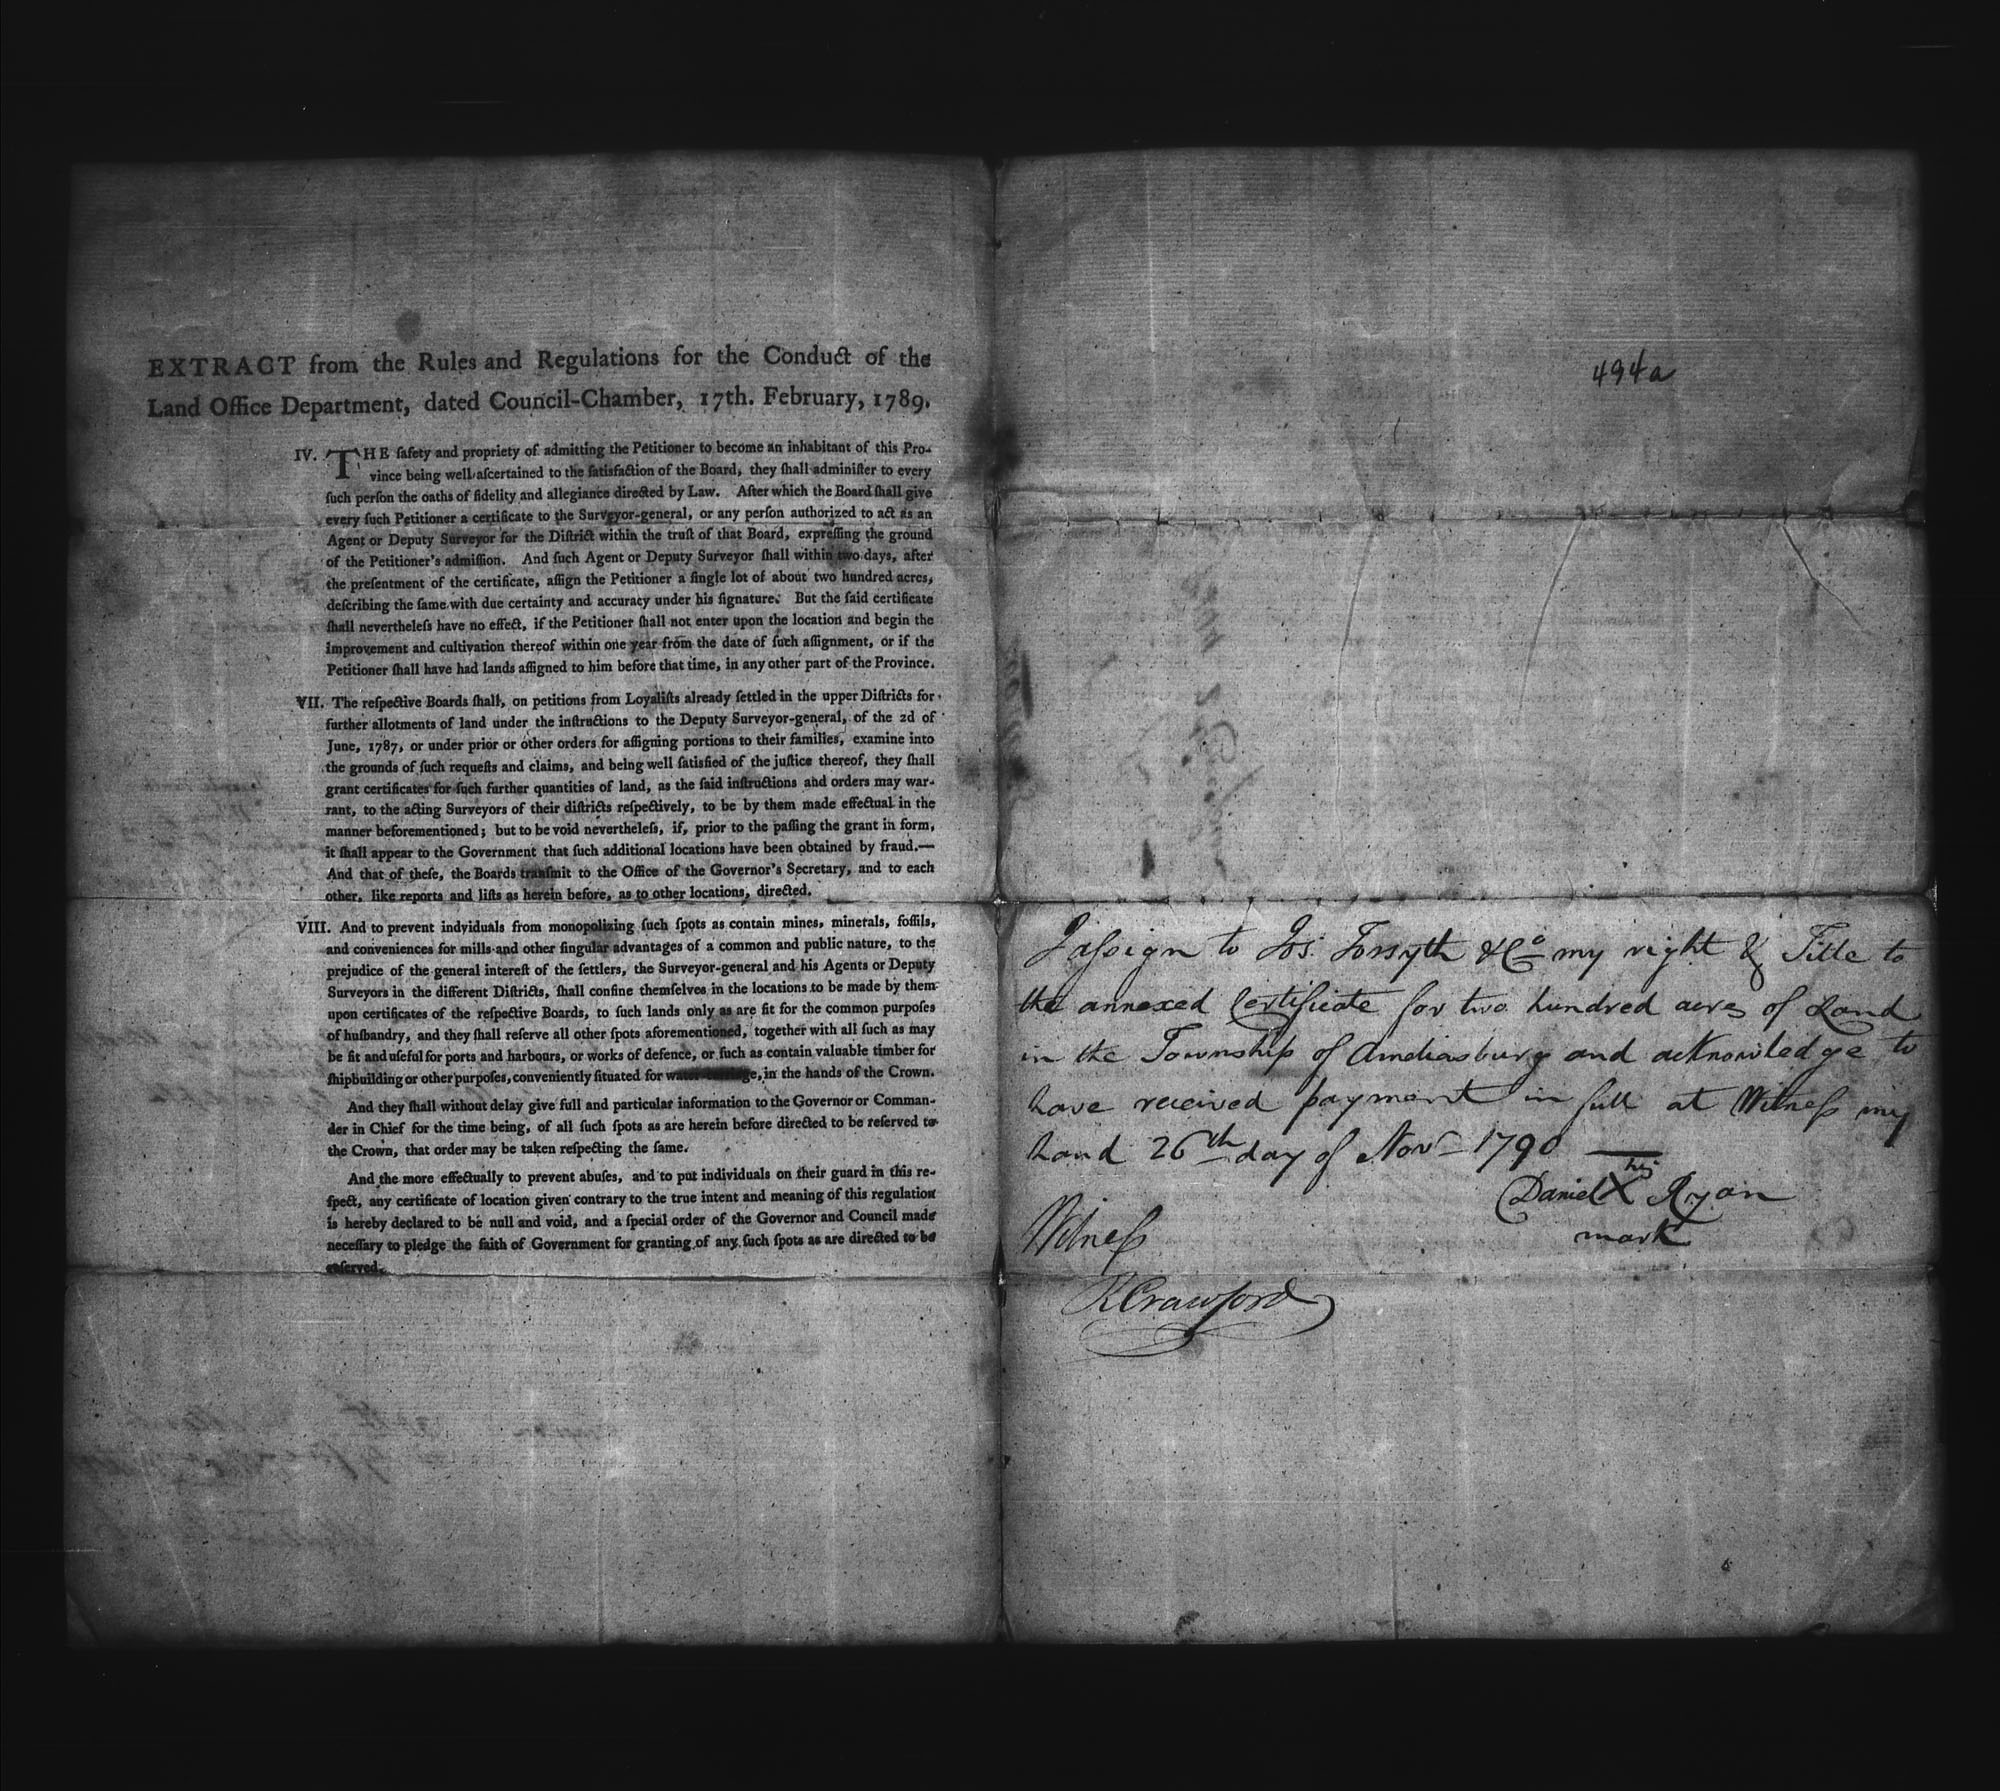 EXTRACT from the Rules and Regulations for the Conduct of the
Land Office Department, dated Council-Chamber, 17th. February, 1789.
IV. THE ſafety and propriety of admitting the Petitioner to become an inhabitant of this Pro-
vince being well aſcertained to the ſatisfaction of the Board, they ſhall adminiſter to every
ſuch perſon the oaths of fidelity and allegiance directed by Law. After which the Board ſhall give
every ſuch Petitioner a certificate to the Surveyor-general, or any perſon authorized to act as an
Agent or Deputy Surveyor for the Diſtrict within the truſt of that Board, expreſſing the ground
of the Petitioner's admiſſion. And ſuch Agent or Deputy Surveyor ſhall within two days, after
the preſentment of the certificate, aſſign the Petitioner a ſingle lot of about two hundred acres,
deſcribing the ſame with due certainty and accuracy under his ſignature. But the ſaid certificate
ſhall nevertheleſs have no effect, if the Petitioner ſhall not enter upon the location and begin the
improvement and cultivation thereof within one year from the date of ſuch aſſignment, or if the
Petitioner ſhall have had lands aſſigned to him before that time, in any other part of the Province.
VII. The reſpective Boards ſhall, on petitions from Loyaliſts already ſettled in the upper Diſtricts for
further allotments of land under the inſtructions to the Deputy Surveyor-general, of the 2d of
June, 1787, or under prior or other orders for aſſigning portions to their families, examine into
the grounds of ſuch requeſts and claims, and being well ſatisfied of the juſtice thereof, they ſhall
grant certificates for ſuch further quantities of land, as the ſaid inſtructions and orders may war-
rant, to the acting Surveyors of their diſtricts reſpectively, to be by them made effectual in the
manner beforementioned; but to be void nevertheleſs, if, prior to the paſſing the grant in form,
it ſhall appear to the Government that ſuch additional locations have been obtained by fraud.—
And that of theſe, the Boards tranſmit to the Office of the Governor's Secretary, and to each
other, like reports and liſts as herein before, as to other locations, directed.
VIII. And to prevent indyiduals from monopolizing ſuch ſpots as contain mines, minerals, foſſils,
and conveniences for mills and other ſingular advantages of a common and public nature, to the
prejudice of the general intereſt of the ſettlers, the Surveyor-general and his Agents or Deputy
Surveyors in the different Diſtricts, ſhall confine themſelves in the locations to be made by them
upon certificates of the reſpective Boards, to ſuch lands only as are fit for the common purpoſes
of huſbandry, and they ſhall reſerve all other ſpots aforementioned, together with all ſuch as may
be fit and uſeful for ports and harbours, or works of defence, or ſuch as contain valuable timber for
ſhipbuilding or other purpoſes, conveniently ſituated for water-carriage, in the hands of the Crown.
And they ſhall without delay give full and particular information to the Governor or Comman-
der in Chief for the time being, of all ſuch ſpots as are herein before directed to be reſerved to
the Crown, that order may be taken reſpecting the ſame.
And the more effectually to prevent abuſes, and to put individuals on their guard in this re-
ſpect, any certificate of location given contrary to the true intent and meaning of this regulation
is hereby declared to be null and void, and a ſpecial order of the Governor and Council made
neceſſary to pledge the faith of Government for granting of any ſuch ſpots as are directed to be
reſerved.
494a
I aſsign to Jos. Forsyth &Co my right & Title to
the annexed Certificate for two hundred acres of Land
in the Township of Ameliasburg and acknowledge to
have received payment in full at Witneſs my
hand 26th day of Novr 1790
his
Daniel X Ryan
mark
Witneſs
R Crawford